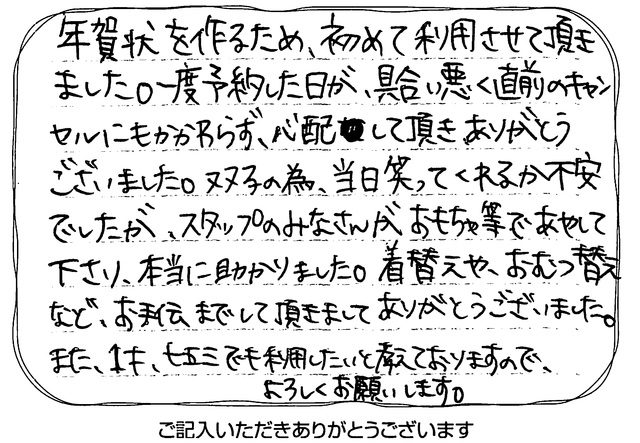 年賀状を作るため、初めて利用させて頂き
ました。一度予約した日が、具合い悪く直前のキャン
セルにもかかわらず、心配して頂きありがとう
ございました。双子の為、当日笑ってくれるか不安
でしたが、スタッフのみなさんがおもちゃ等であやして
下さり、本当に助かりました。着替えや、おむつ替え
など、お手伝までして頂きましてありがとうございました。
また、1才、七五三でも利用したいと考えておりますので、
よろしくお願いします。
ご記入いただきありがとうございます